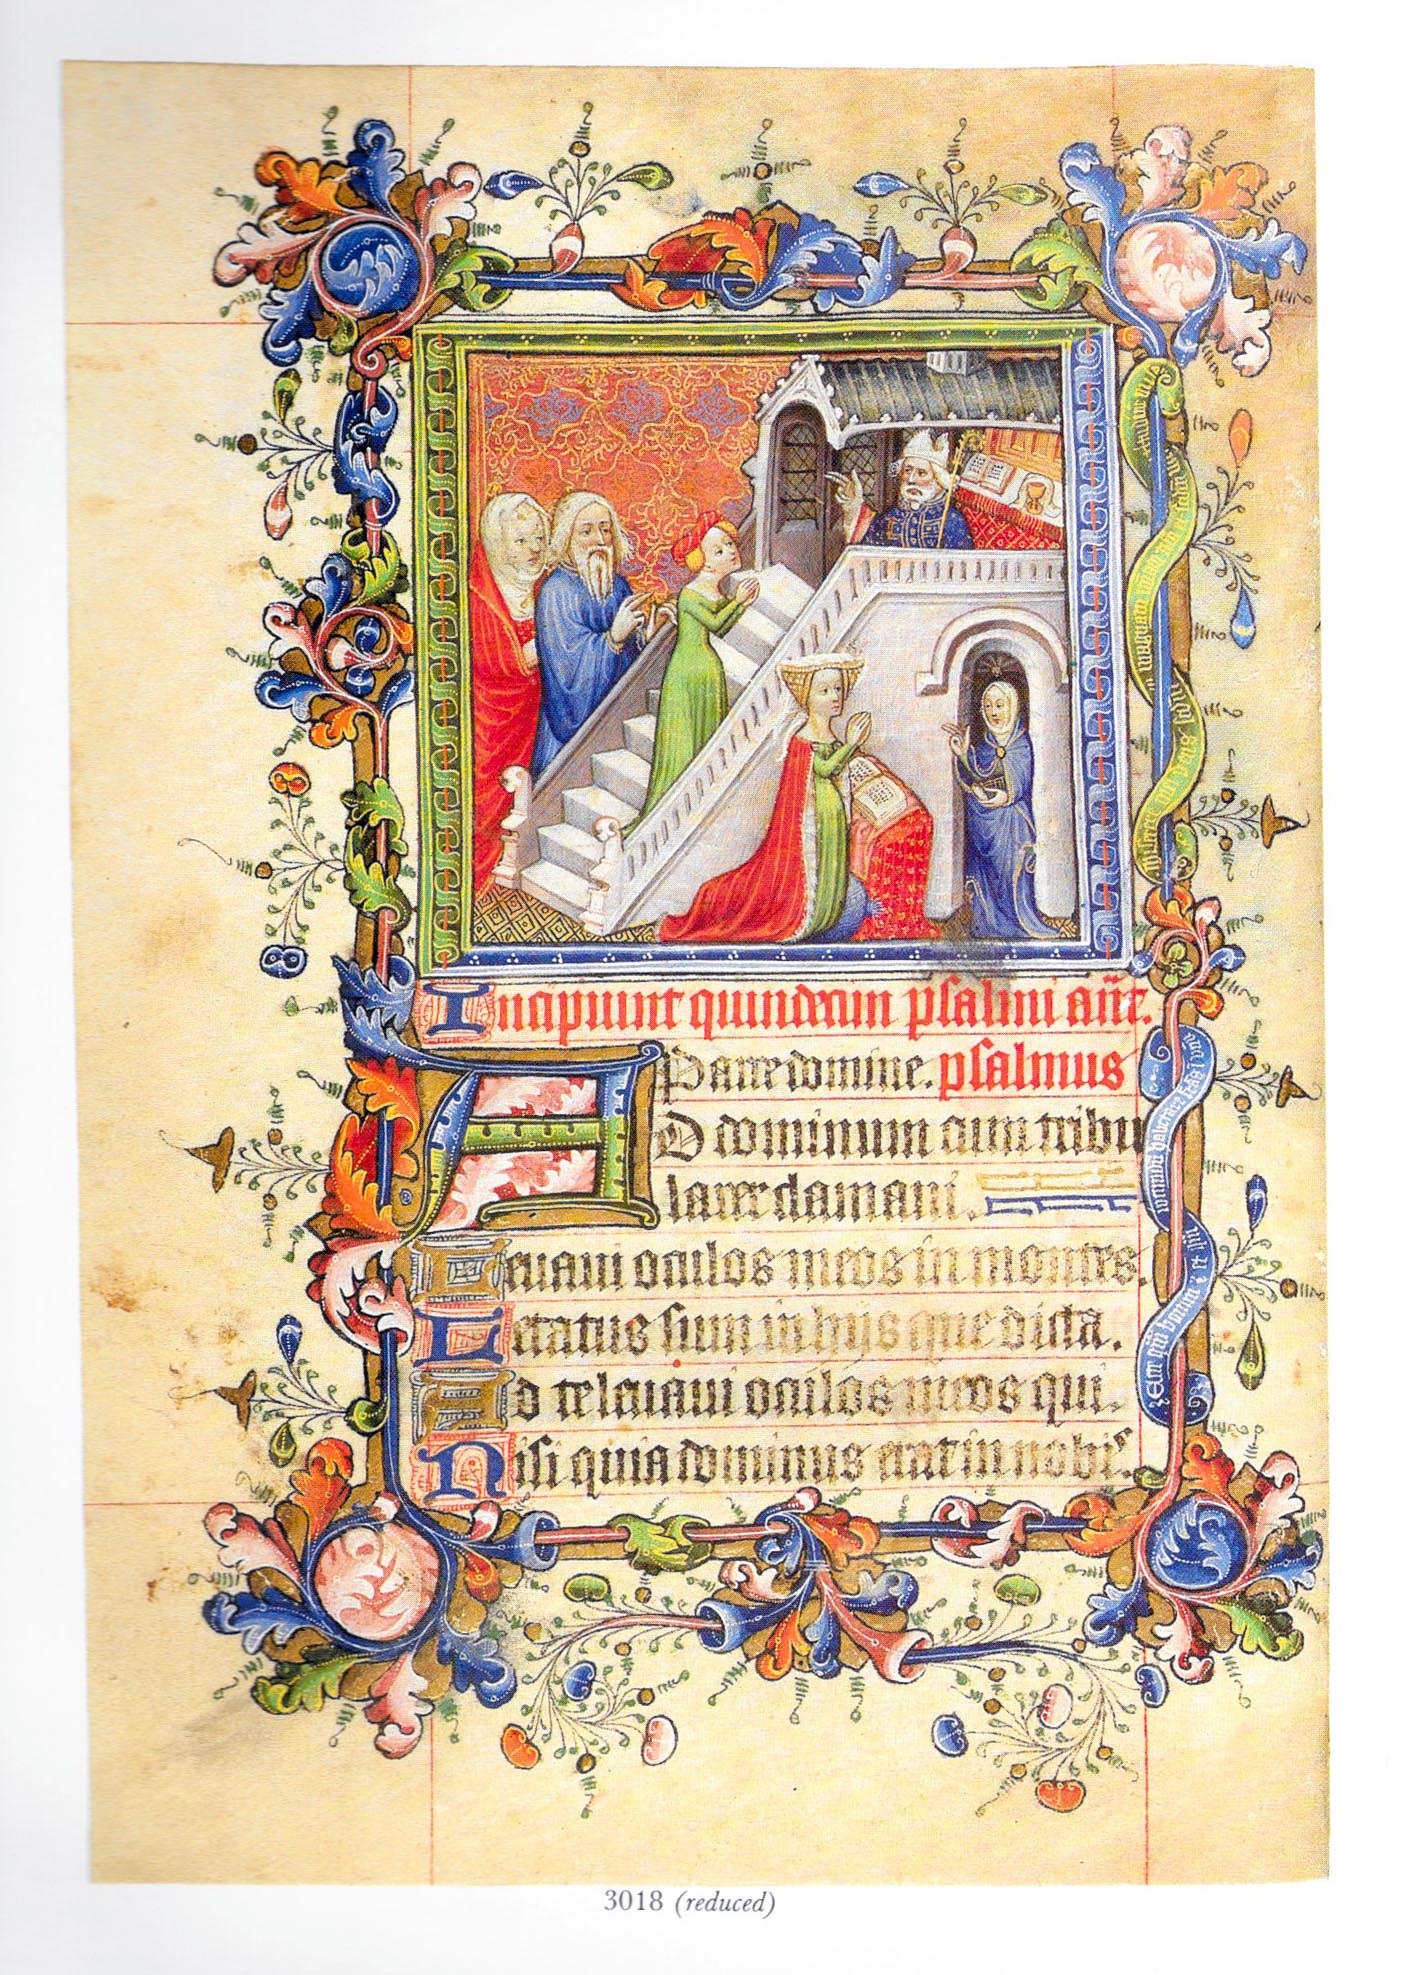 Incipiunt quindecim psalmi
Parce domine. psalmus
AD dominum cum tribu
larer clamavi.
Levavi oculos meos in montes.
Letatus sum in hijs que dicta.
Ad te levavi oculos meos qui.
Nisi quia dominus erat in nobis
3018 (reduced)